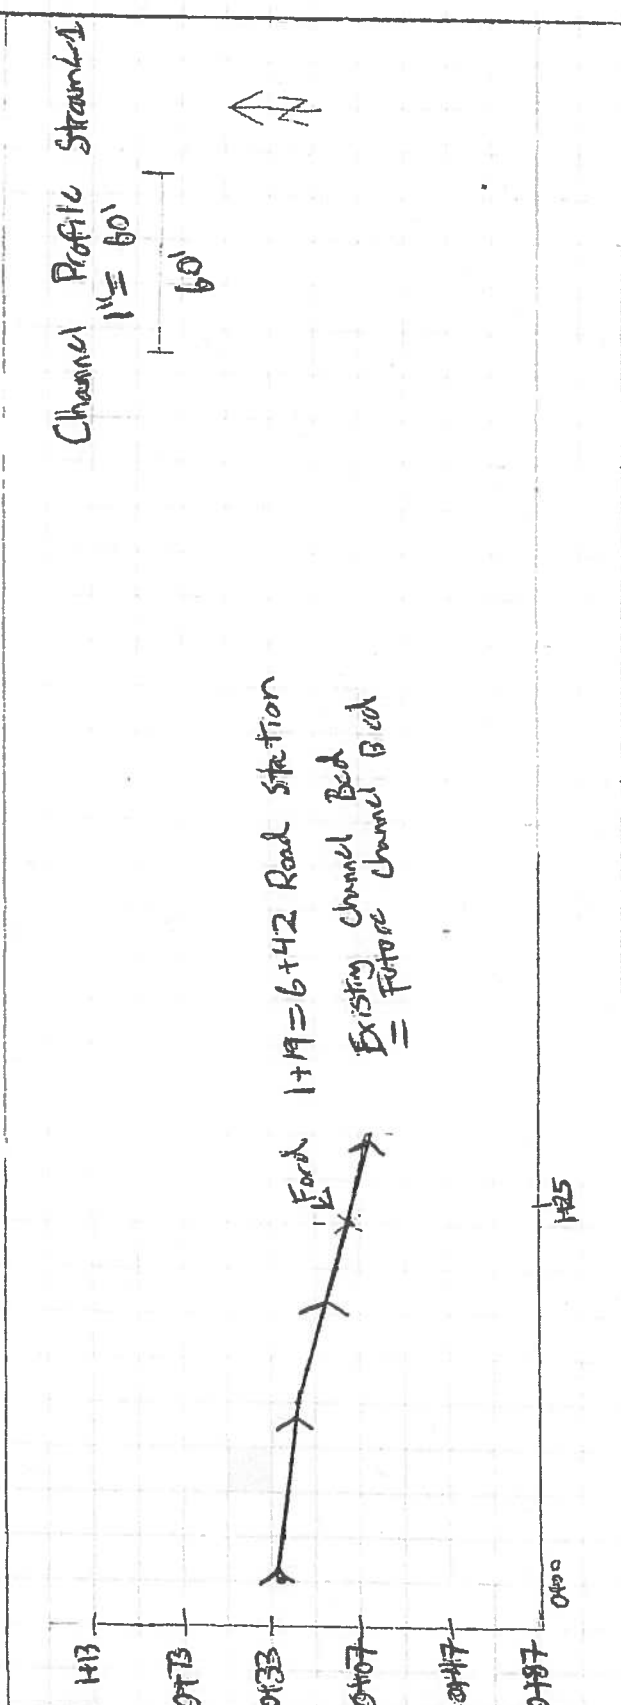 Channel Profile Stream 4-1
1" = 60'
60'
N
Ford 1+19 = 6+42 Road Station
Existing Channel Bed
= Future Channel Bed
1+13
0+73
0+33
0+07
0+47
0+87
0+00
1+25